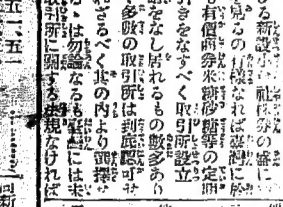 る新設小社株券の盛に
を見るの有様なれば臺灣に於
も有價證券米糖砂糖等の定期
引きをなすべく取引所設立
をなし居れるもの數多あり
多數の取引所は到底認可せ
ざるべく其の内より選擇
は勿論なるも臺灣には未
取引所に關する法規なければ
五一、五一
同新